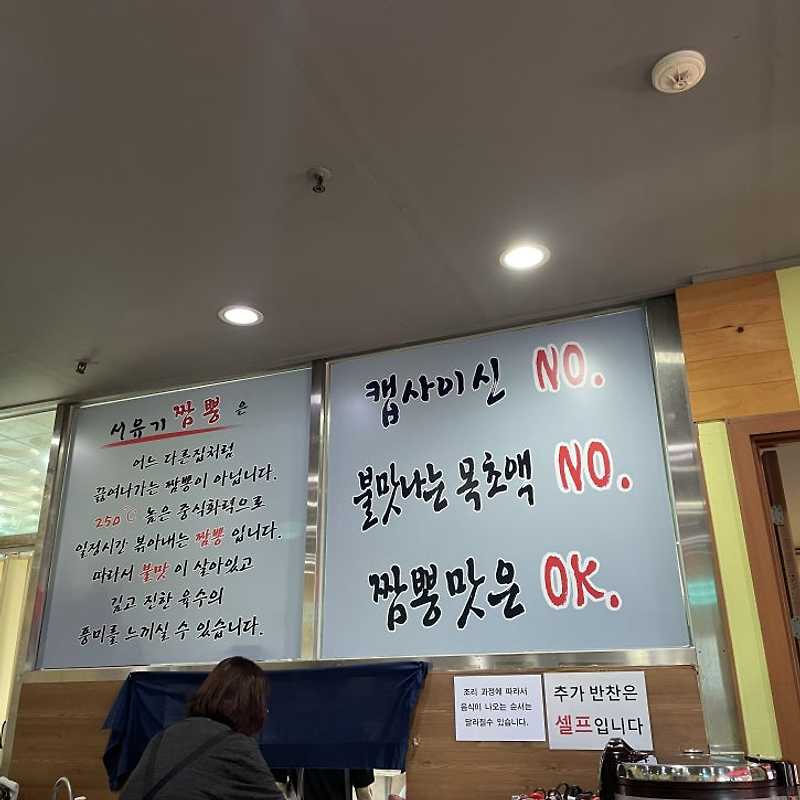 서유기 짬뽕은
어느 다른집처럼
끓여나가는 짬뽕이 아닙니다.
250℃ 높은 중식화력으로
일정시간 볶아내는 짬뽕 입니다.
따라서 불맛이 살아있고
깊고 진한 육수의
풍미를 느끼실 수 있습니다.
캡사이신 NO.
불맛나는 목초액 NO.
짬뽕맛은 OK.
조리 과정에 따라서
음식이 나오는 순서는
달라질수 있습니다.
추가 반찬은
셀프입니다